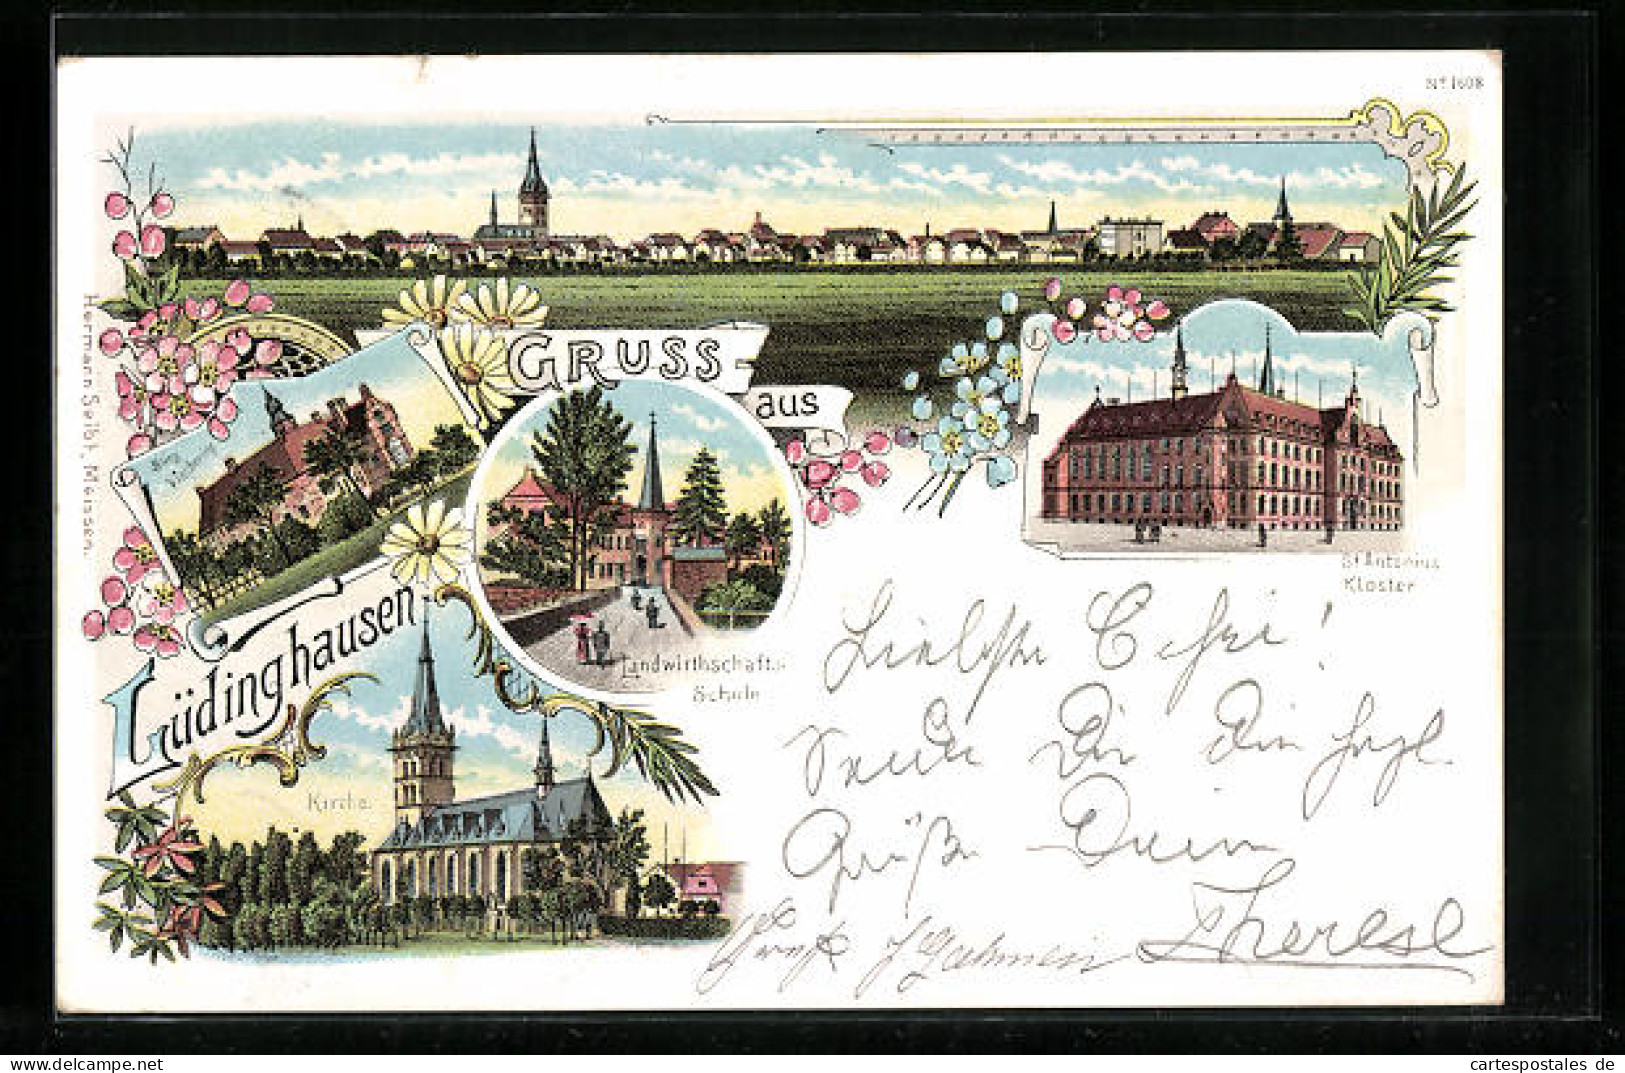 No 1608
GRUSS
aus
Lüdinghausen.
Burg
Vischering
Landwirthschafts
Schule
St Antonius
Kloster
Kirche.
Hermann Seibt, Meissen.
Liebste
sende Dir die herzl.
Grüße Deine
Therese
cartespostales de